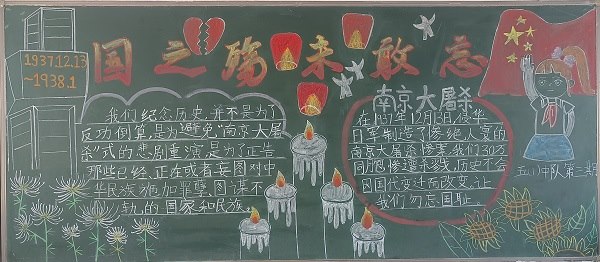 1937.12.13
~1938.1
国之殇未敢忘
我们纪念历史,并不是为了
反功倒算,是为避免"南京大屠
杀"式的悲剧重演,是为了正告
那些已经、正在或者妄图对中
华民族施加罪孽,图谋不
轨的国家和民族。
南京大屠杀
在1937年12月13日,侵华
日军制造了惨绝人寰的
南京大屠杀惨案,我们30万
同胞惨遭杀戮,历史不会
因时代变迁而改变,让
我们勿忘国耻。
五(1)中队第三期